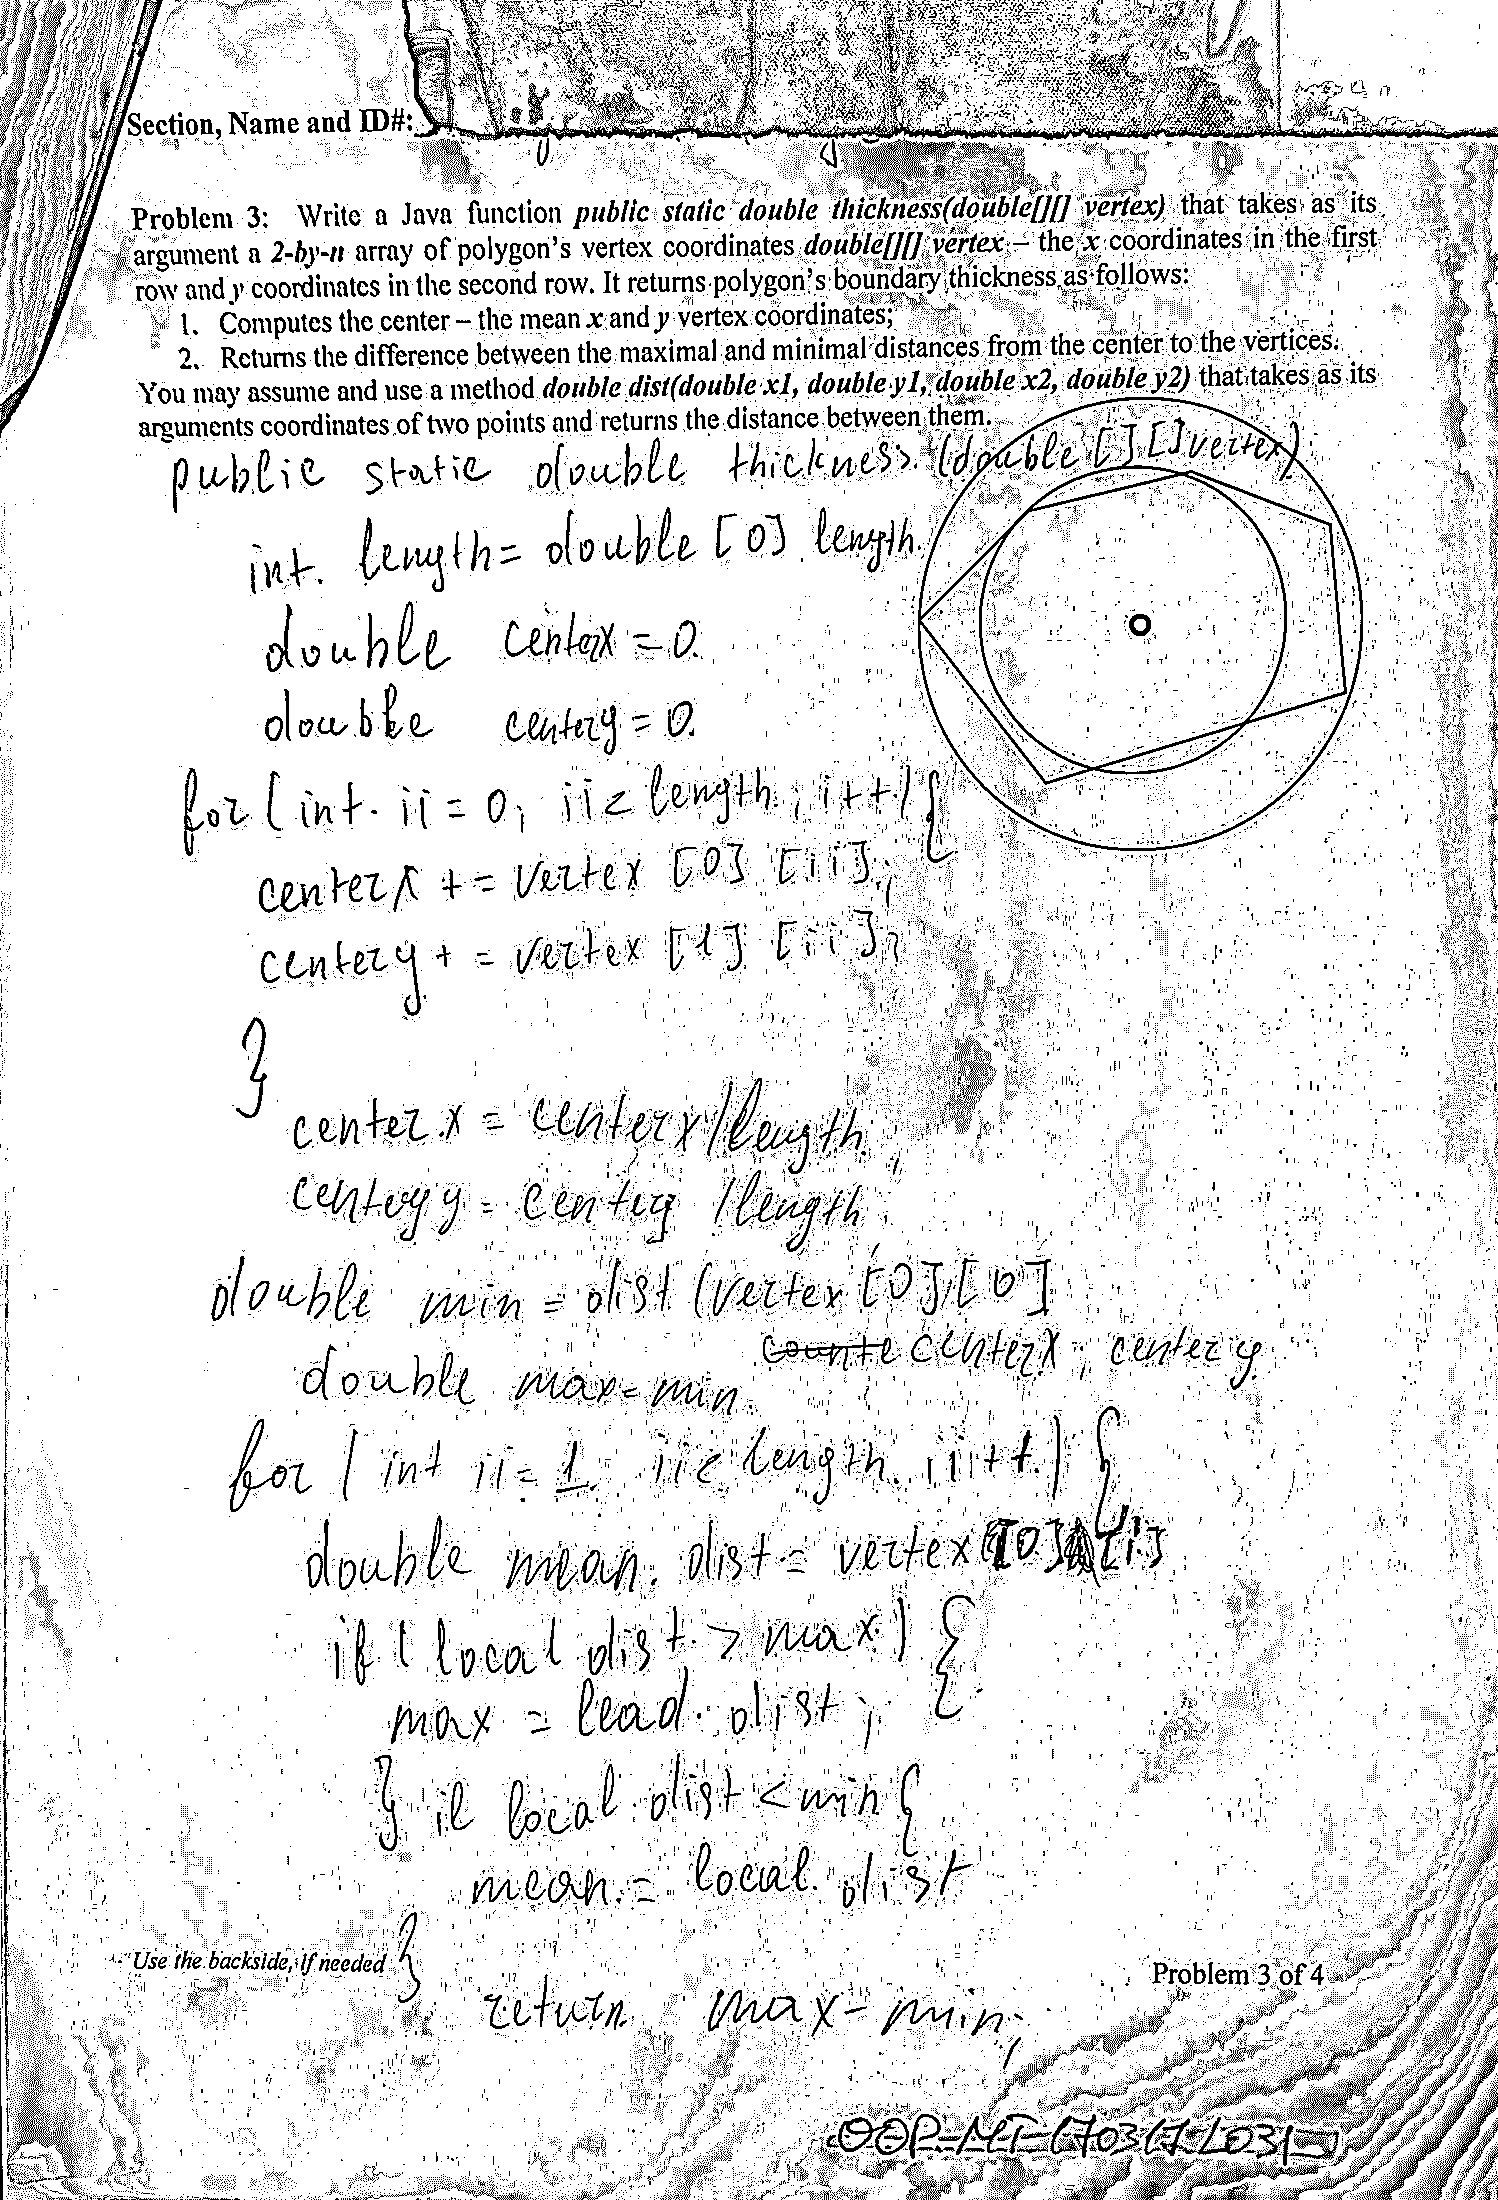 Section, Name and ID#:
Problem 3: Write a Java function public static double thickness(double[][] vertex) that takes as its
argument a 2-by-n array of polygon's vertex coordinates double[][] vertex – the x coordinates in the first
row and y coordinates in the second row. It returns polygon's boundary thickness as follows:
1. Computes the center – the mean x and y vertex coordinates;
2. Returns the difference between the maximal and minimal distances from the center to the vertices.
You may assume and use a method double dist(double x1, double y1, double x2, double y2) that takes as its
arguments coordinates of two points and returns the distance between them.
public static double thickness (double [] [] vertex)
int. length = double [0] length.
double centerx = 0.
double centery = 0.
for (int. ii = 0; ii < length; i++) {
centerx += vertex [0] [ii];
centery += vertex [1] [ii];
}
center.x = centerx/length.
centery y = centery /length.
double min = dist (vertex [0] [0]
counte centerx, center y
double max = min.
for (int ii = 1. ii < length. ii++.) {
double mean. dist = vertex [0] [i]
if (local dist. > max) {
max = lead. dist;
} il local. dist < min {
mean. = local. dist
Use the backside, if needed }
Problem 3 of 4
return max - min;